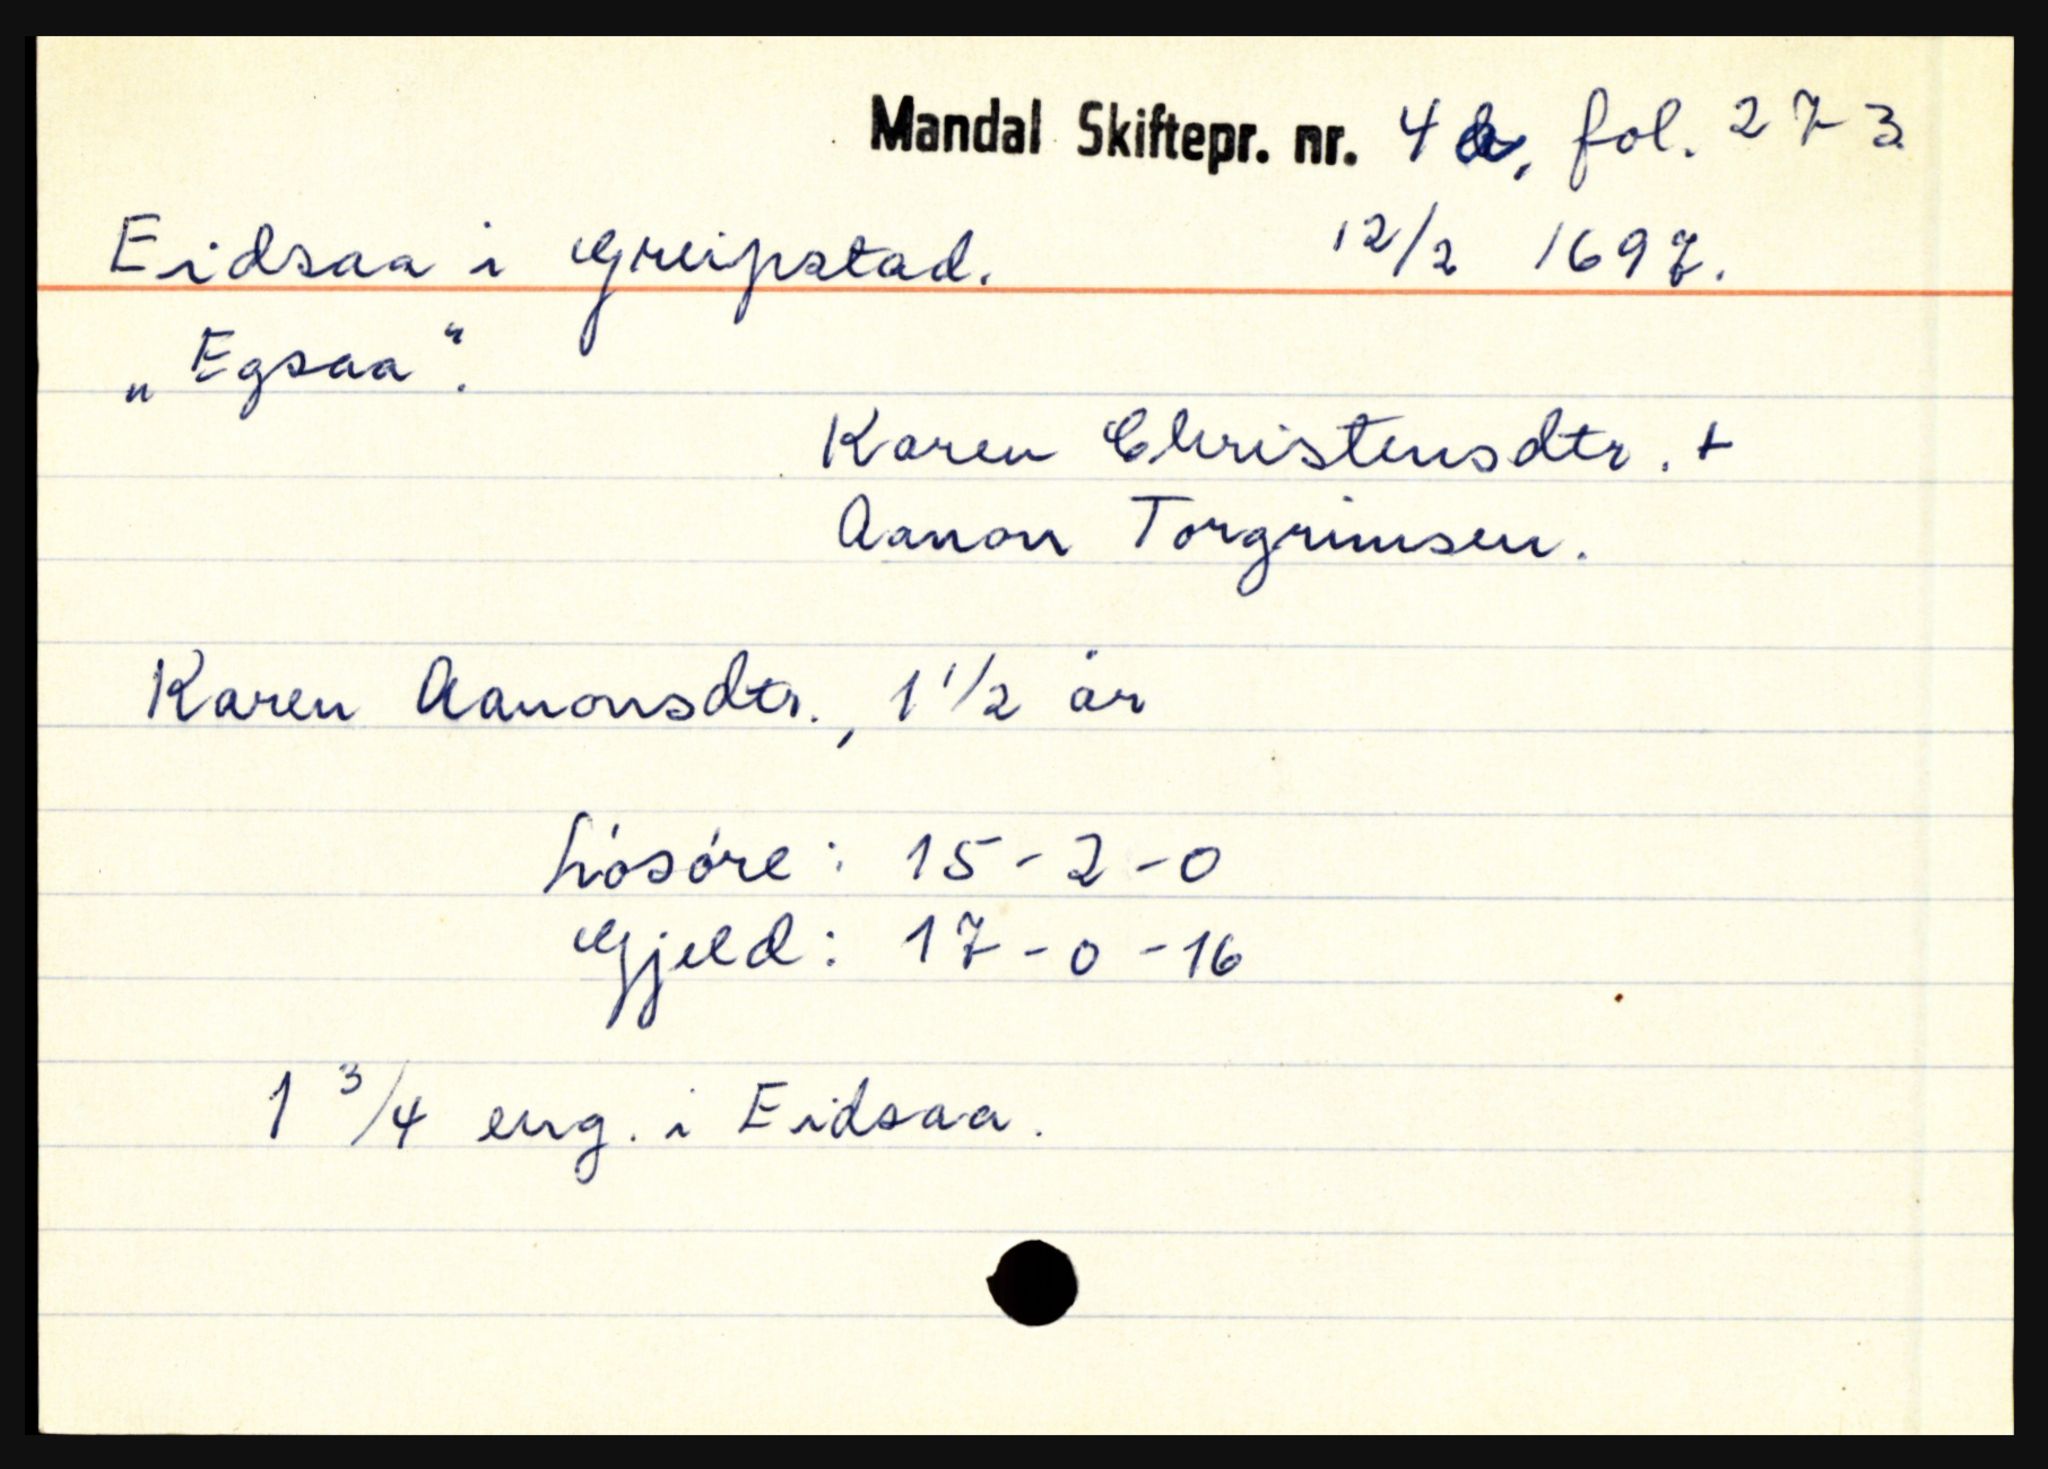 Mandal Skiftepr. nr. 4a, fol. 273
Eidsaa i Greipstad. 12/2 1697.
„Egsaa“.
Karen Christensdtr. +
Aanon Torgrimsen.
Karen Aanonsdtr., 1 1/2 år
Lösöre: 15-2-0
Gjeld: 17-0-16
1 3/4 eng. i Eidsaa.